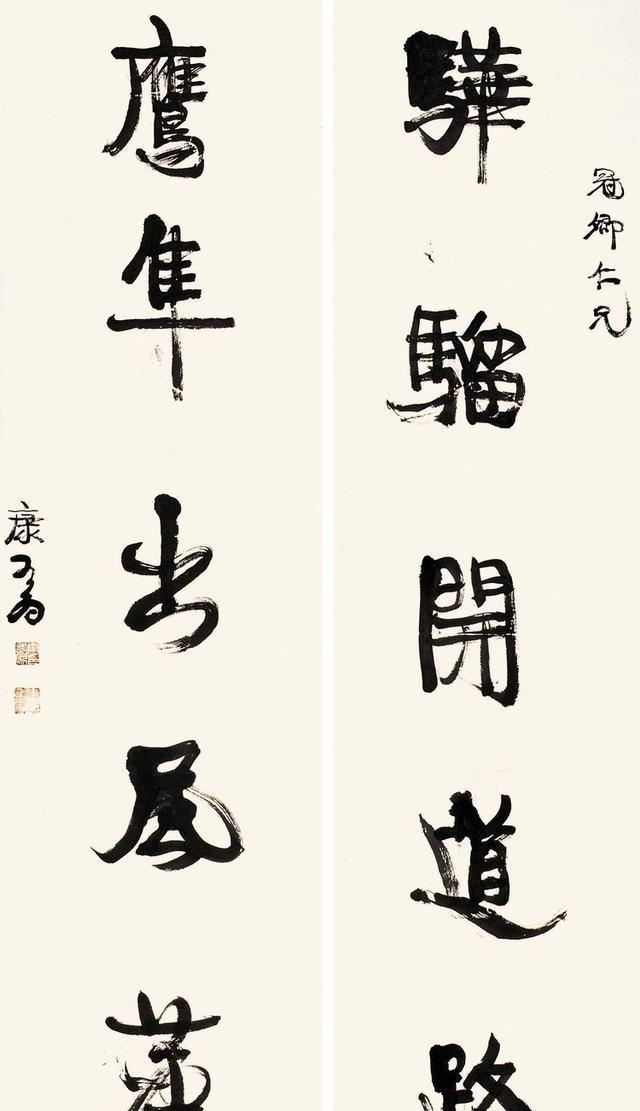 冠卿仁兄
驊騮開道路
鷹隼出風
康有為